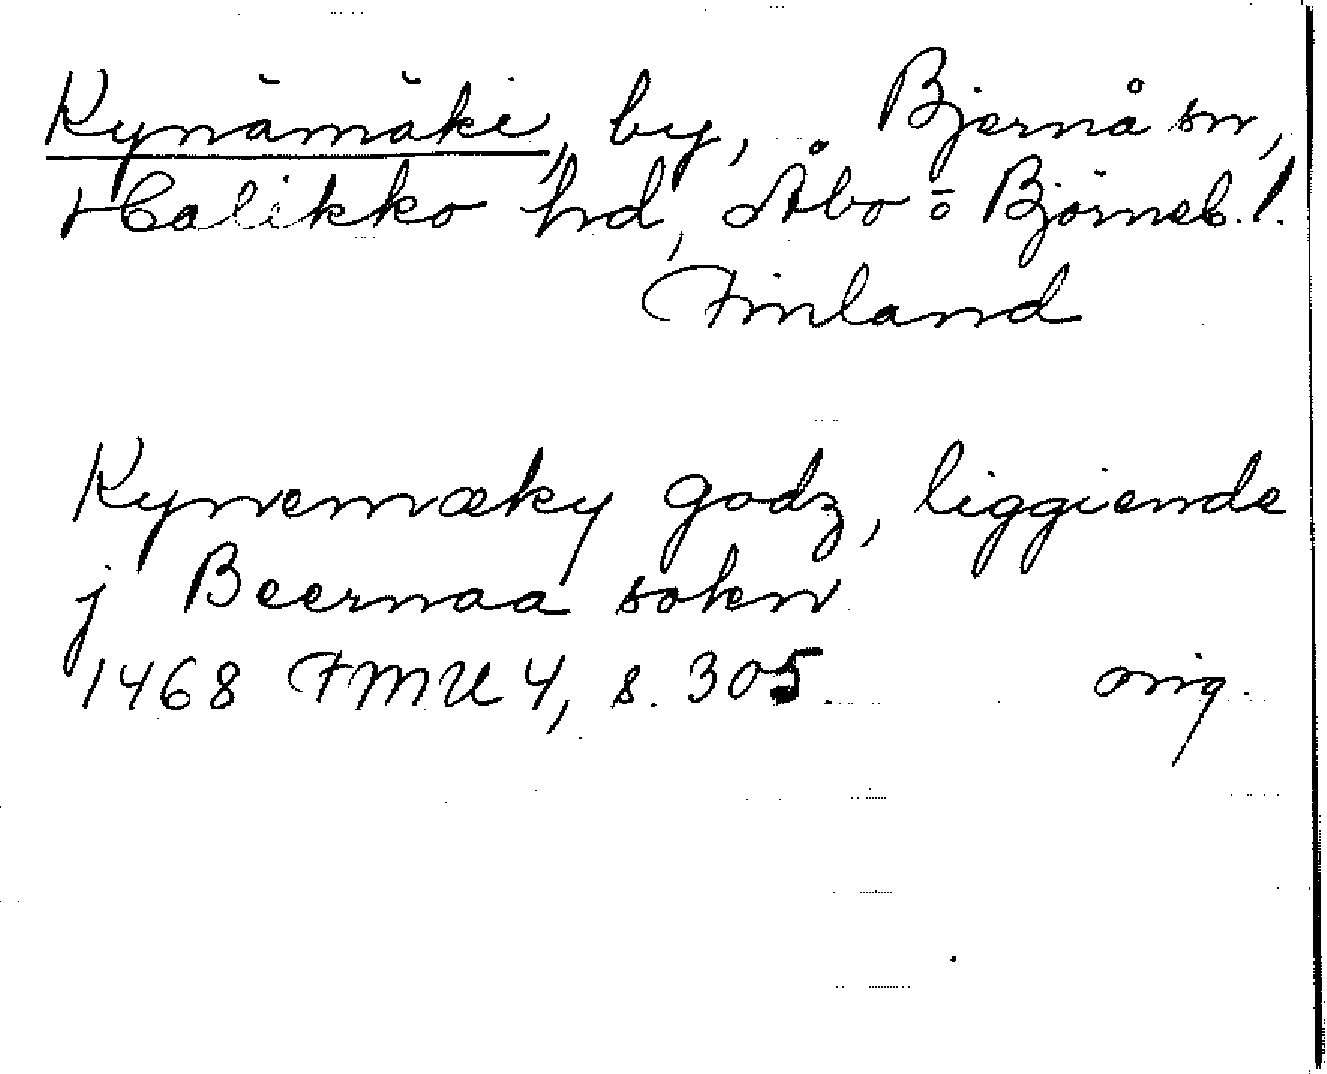 Kynämäki, by, Bjernå sn,
Halikko hd, Åbo o Björneb. l.
Finland
Kynemæky godz, liggiende
j Beernaa sokn
1468 FMU 4, s. 305. orig.